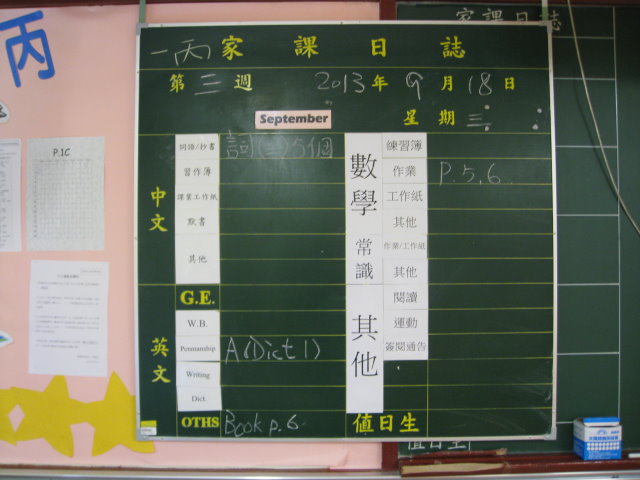 丙
P.1C
家課日誌
一丙家課日誌
第三週 2013年9月18日
September 星期三
中文
詞語/抄書 詞(三)5個
習作簿
課業工作紙
默書
其他
英文
G.E.
W.B.
Penmanship A(Dict 1)
Writing
Dict
OTHS Book p.6
數學
練習簿
作業 P.5,6
工作紙
其他
常識
作業/工作紙
其他
其他
閱讀
運動
簽閱通告
值日生
值日生